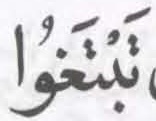 تَبْتَغُوا